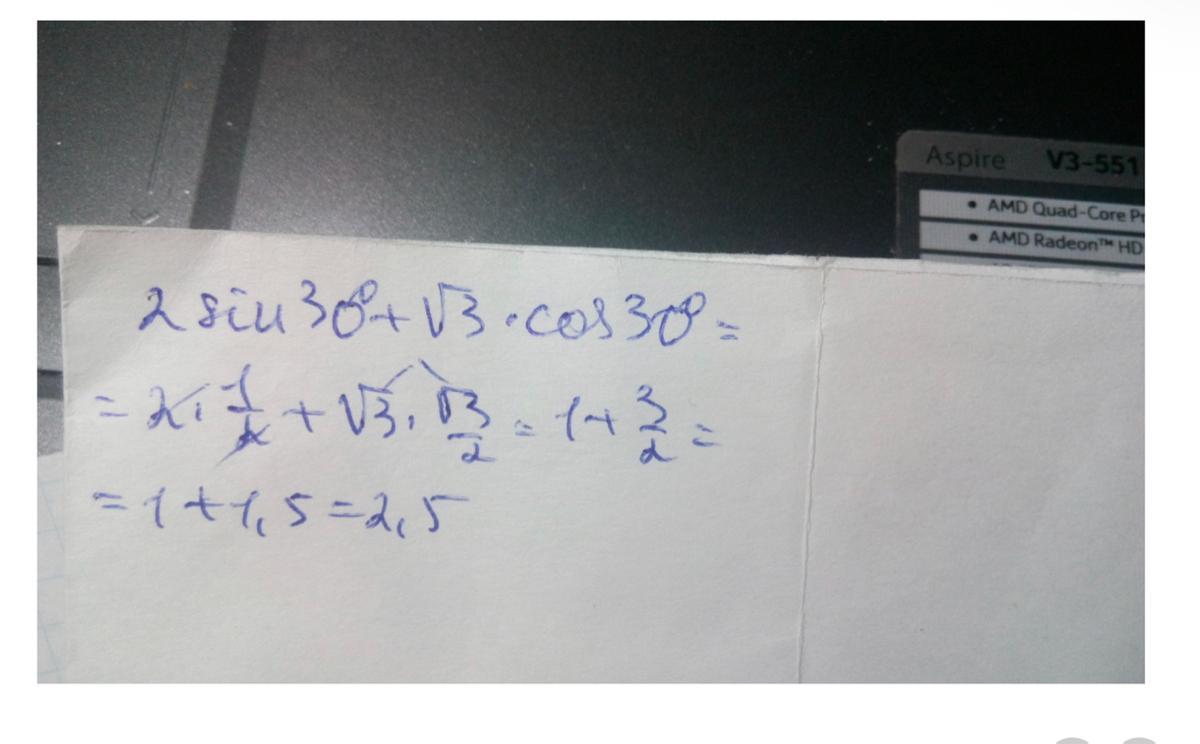 Aspire V3-551
• AMD Quad-Core
• AMD Radeon™ HD
2 sin 30° + √3 · cos 30° =
= 2 · 1/2 + √3 · √3/2 = 1 + 3/2 =
= 1 + 1,5 = 2,5